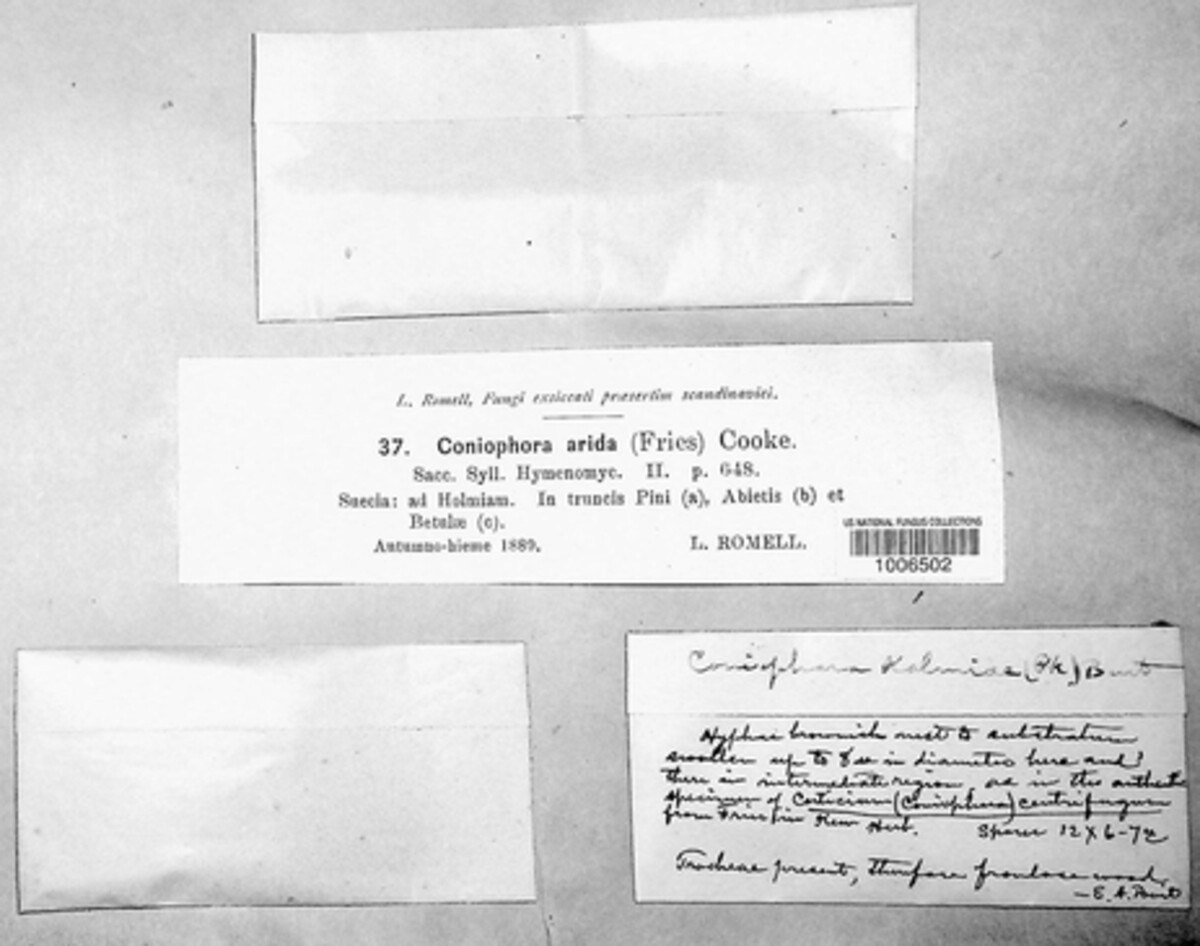 L. Romell, Fungi exsiccati præsertim scandinavici.
37. Coniophora arida (Fries) Cooke.
Sacc. Syll. Hymenomyc. II. p. 648.
Suecia: ad Holmiam. In truncis Pini (a), Abietis (b) et
Betulæ (c).
Autumno-hieme 1889. L. ROMELL.
US NATIONAL FUNGUS COLLECTIONS
1006502
Coniophora Kalmiae (Pk) Burt
Hyphae brownish next to substratum
swollen up to 8 µ in diameter here and
there in intermediate region as in the authentic
specimen of Corticium (Coniophora) centrifugum
from Fries in Kew Herb. Spores 12 X 6-7 µ
Tracheae present, therefore frondose wood,
- E. A. Burt